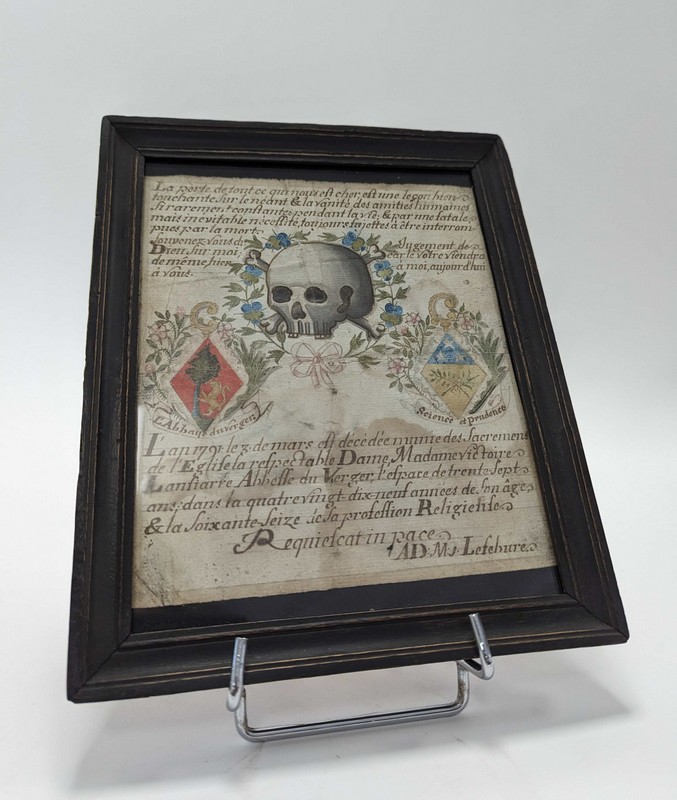 La perte de tout ce qui nous est cher, est une leçon bien
touchante sur le néant & la vanité des amitiés humaines
si rarement constantes pendant la vie, & par une fatale
mais inévitable nécessité, toujours sujettes à être interrom
pues par la mort.
Souvenez-vous du Jugement de
Dieu sur moi car le votre viendra
de même, hier à moi, aujourd'hui
à vous.
L'Abbaye du Verger
Science et Prudence
L'an 1791 le 3 de mars est décédée munie des Sacremens
de l'Eglise la respectable Dame, Madame Victoire
Lanfiarre Abbesse du Verger, l'espace de trente Sept
ans; dans la quatre vingt dix neuf années de son âge
& la soixante Seize de sa profession Religieuse
Requiescat in pace
AD: MJ Lefebure